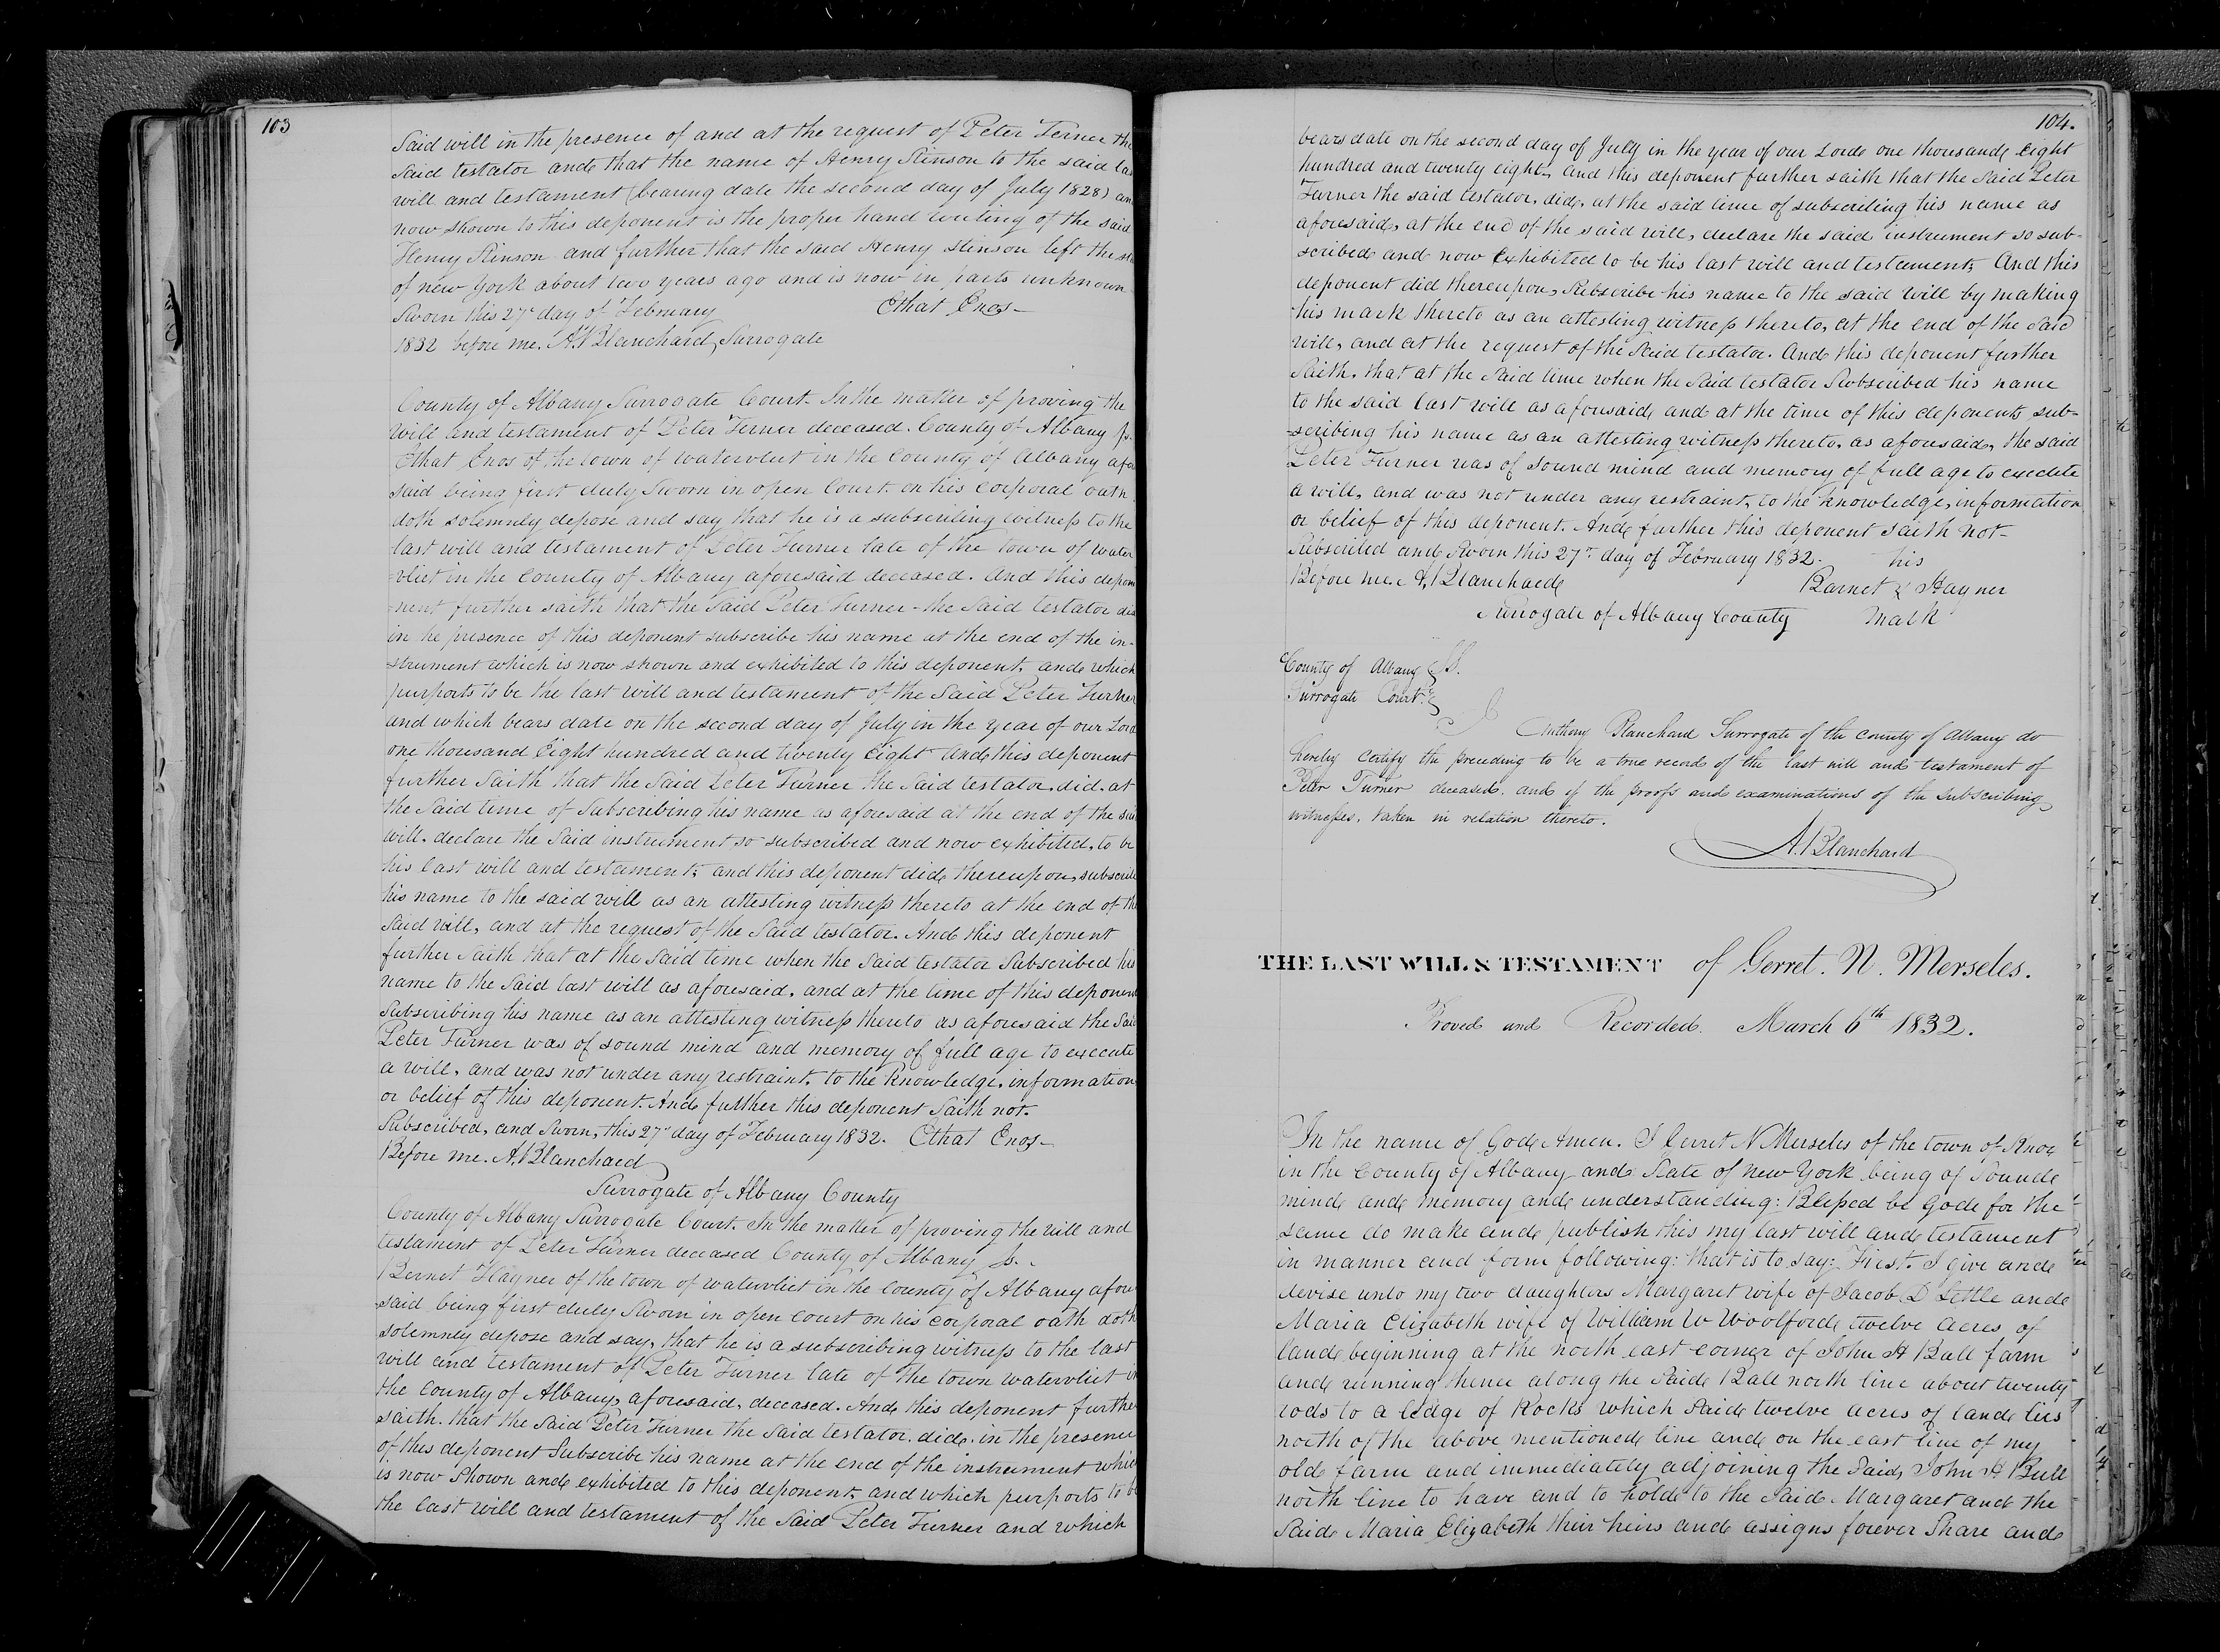 103
Said will in the presence of and at the request of Peter Terner the
Said testator and that the name of Henry Stinson to the said las
will and testament (bearing date the second day of July 1828) an
now shown to this deponent is the proper hand writing of the said
Henry Stinson and further that the said Henry Stinson left the
of new York about two years ago and is now in parts unknown
Sworn this 27 day of February Ethat Enos
1832 before me. A. Blanchard, Surrogate
County of Albany Surrogate Court. In the matter of proving the
will and testament of Peter Terner deceased. County of Albany ss.
Ethat Enos of the town of watervliet in the County of Albany afore
said being first duly Sworn in open Court. on his corporal oath
doth solemnly depose and say that he is a subscribing witness to the
last will and testament of Peter Turner late of the town of water
=vliet in the County of Albany aforesaid deceased. And this depo
=nent further saith that the Said Peter Turner - the Said testator did
in he presence of this deponent subscribe his name at the end of the in-
-strument which is now shown and exhibited to this deponent, and which
purports to be the last will and testament of the Said Peter Turner
and which bears date on the second day of July in the year of our Lord
one thousand Eight hundred and twenty Eight And this deponent
further Saith that the Said Peter Turner the Said testator, did, at
the Said time of Subscribing his name as aforesaid at the end of the sai
will, declare the Said instrument so subscribed and now exhibited, to be
his last will and testament; and this deponent did, thereupon, subscribe
his name to the said will as an attesting witness thereto at the end of the
Said will, and at the request of the Said testator. And this deponent
further Saith that at the Said time when the Said testator Subscribed his
name to the Said last will as aforesaid, and at the time of this deponent
Subscribing his name as an attesting witness thereto as aforesaid the Said
Peter Turner was of sound mind and memory of full age to execute
a will, and was not under any restraint, to the knowledge, information
or belief of this deponent. And further this deponent Saith not.
Subscribed, and Sworn, this 27 day of February 1832. Ethat Enos
Before me. A. Blanchard
Surrogate of Albany County
County of Albany Surrogate Court. In the matter of proving the will and
testament of Peter Turner deceased County of Albany ss.
Bernet Hayner of the town of watervliet in the County of Albany afore
=said being first duly Sworn in open court on his corporal oath doth
solemnly depose and say, that he is a subscribing witness to the last
will and testament of Peter Turner late of the town watervliet in
the County of Albany, aforesaid, deceased. And this deponent further
saith. that the Said Peter Turner the Said testator, did, in the presence
of this deponent Subscribe his name at the end of the instrument which
is now Shown and exhibited to this deponent, and which purports to be
the last will and testament of the Said Peter Turner and which
104.
bears date on the second day of July in the year of our Lord one thousand Eight
hundred and twenty eight, And this deponent further saith that the Said Peter
Turner the said testator, did, at the said time of subscribing his name as
aforesaid, at the end of the said will, declare the said instrument so sub-
scribed and now Exhibited to be his last will and testament; And this
deponent did thereupon, Subscribe his name to the said will by making
his mark thereto as an attesting witness thereto, at the end of the Said
will, and at the request of the Said testator. And this deponent further
Saith, that at the Said time when the Said testator Subscribed his name
to the said last will as aforesaid, and at the time of this deponents sub=
=scribing his name as an attesting witness thereto, as aforesaid, the said
Peter Turner was of Sound mind and memory of full age to execute
a will, and was not under any restraint, to the knowledge, information
or belief of this deponent. And further this deponent saith not-
Subscribed and Sworn this 27th day of February 1832. his
Before me. A. Blanchard Barnet X Hayner
Surrogate of Albany County mark
County of Albany } SS.
Surrogate Court. }
I Anthony Blanchard Surrogate of the county of Albany do
hereby certify the preceding to be a true record of the last will and testament of
Peter Turner deceased, and of the proofs and examinations of the subscribing
witnesses, taken in relation thereto.
A. Blanchard
THE LAST WILL & TESTAMENT of Gerret. N. Merseles.
Proved and Recorded. March 6th 1832.
In the name of God, Amen. I Gerret N Merseles of the town of Knox
in the County of Albany and State of New York being of Sound
mind and memory and understanding: Blessed be God for the
same do make and publish this my last will and testament
in manner and form following: that is to say: First. I give and
devise unto my two daughters Margaret wife of Jacob D Settle and
Maria Elizabeth wife of William W Woolford, twelve acres of
land beginning at the north east corner of John H Ball farm
and running thence along the Said Ball north line about twenty
rods to a ledge of Rocks which Said twelve acres of land lies
north of the above mentioned line and on the east line of my
old farm and immediately adjoining the Said, John H Bull
north line to have and to hold to the Said Margaret and the
Said Maria Elizabeth their heirs and assigns forever Share and